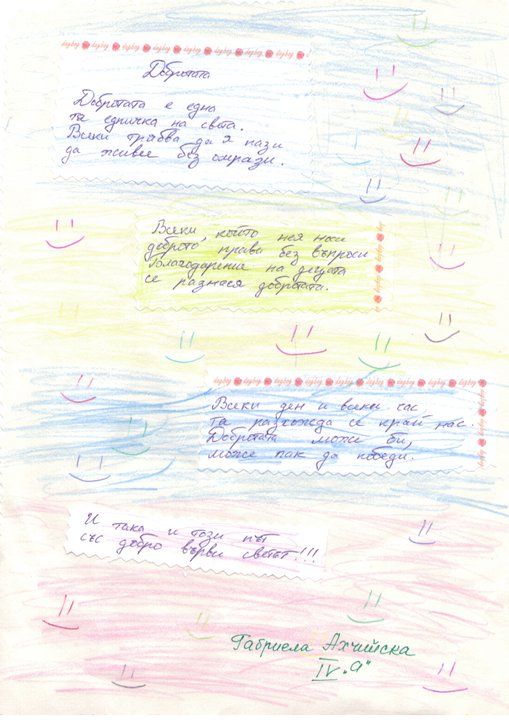 Добротата
Добротата е една
та едничка на света.
Всеки трябва да я пази
да живее без омрази.
Всеки, който нея носи
доброто прави без въпроси
Благодарение на децата
се разнася добротата.
Всеки ден и всеки час
та разхожда се край нас.
Добротата може би,
може пак да победи.
И така и този път
със добро върви светът!!!
Габриела Ахчийска
IV "а"